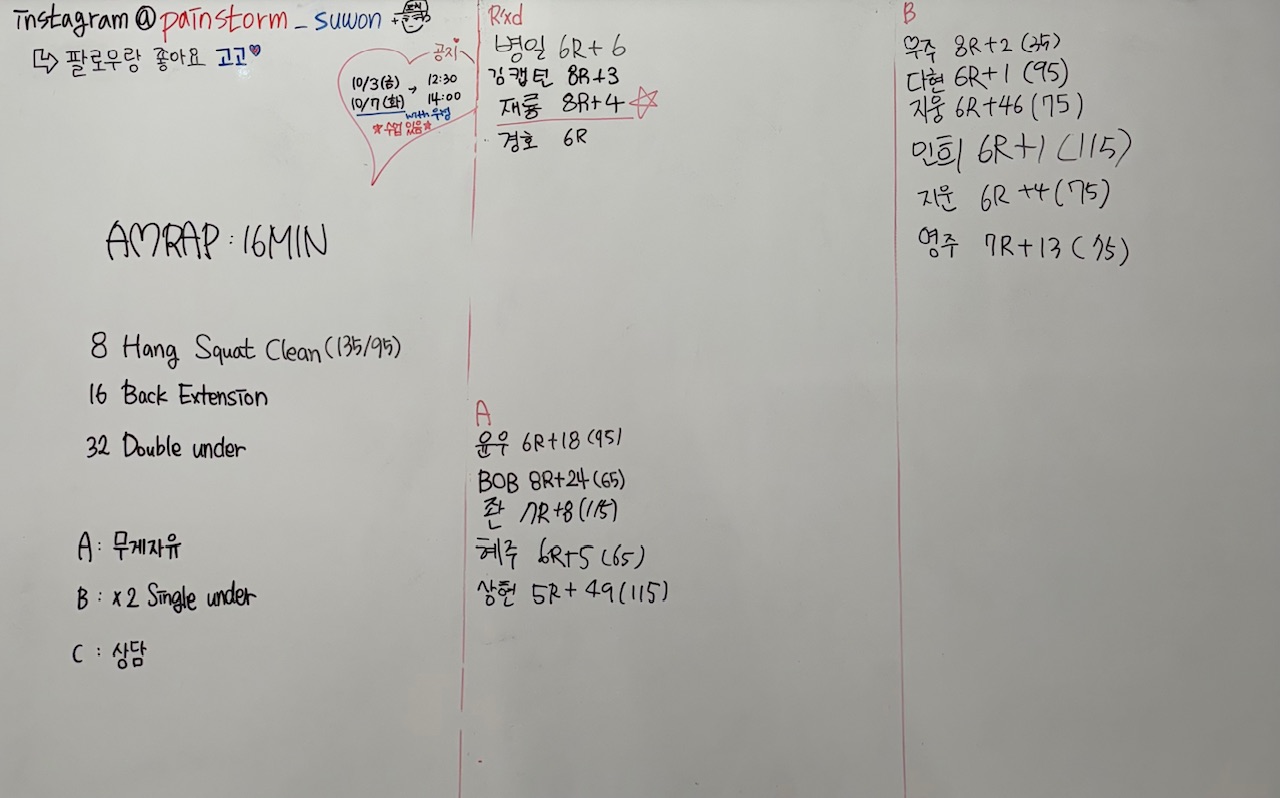 instagram@painstorm_suwon
팔로우랑 좋아요 고고
공지
10/3(금) → 12:30
10/7(화) 14:00
with 우정
수업 있음
AMRAP : 16MIN
8 Hang Squat Clean (135/95)
16 Back Extension
32 Double under
A : 무게자유
B : x2 Single under
C : 상담
R'xd
병일 6R+6
김캡틴 8R+3
재룡 8R+4
경호 6R
A
윤우 6R+18 (95)
BOB 8R+24 (65)
쫜 7R+8 (115)
혜주 6R+5 (65)
상현 5R+49 (115)
B
우주 8R+2 (35)
다현 6R+1 (95)
지웅 6R+46 (75)
민희 6R+1 (115)
지운 6R+4 (75)
영주 7R+13 (75)